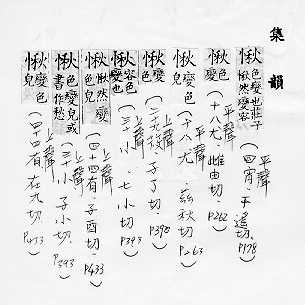 集韻
愀 色變也莊子愀然變容 平聲(四宵·千遙切·P178)
愀 變色皃 平聲(十八尤·雌由切·P262)
愀 變色 平聲(十八尤·茲秋切·P263)
愀 變色 上聲(二十九筱·子了切·P392)
愀 容色變也 上聲(三十小·七小切·P393)
愀 愀然變色皃 上聲(四十四有·子酉切·P433)
愀 色變皃或書作愁 上聲(三十小·子小切·P393)
愀 變色皃 上聲(四十四有·在九切·P433)